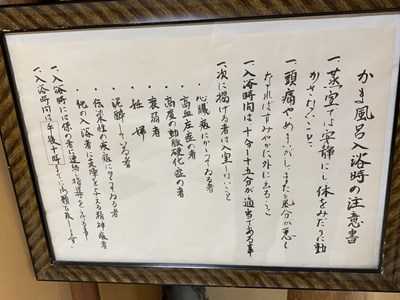 かま風呂入浴時の注意書
一、蒸室では安静にし体をみだりに動
かさないこと
一、頭痛やめまいがしまたは気分が悪く
なればすみやかに外に出ること
一、入浴時間は十分〜十五分が適当である事
一、次に掲げる者は入室しないこと
・心臓病にかかっている者
・高血圧症の者
・高度の動脈硬化症の者
・衰弱者
・妊婦
・泥酔している者
・伝染性の疾病にかかっている者
・他の入浴者に支障を与える精神病者
一、入浴時には係の者の指導を
一、入浴時間は午後十時まで